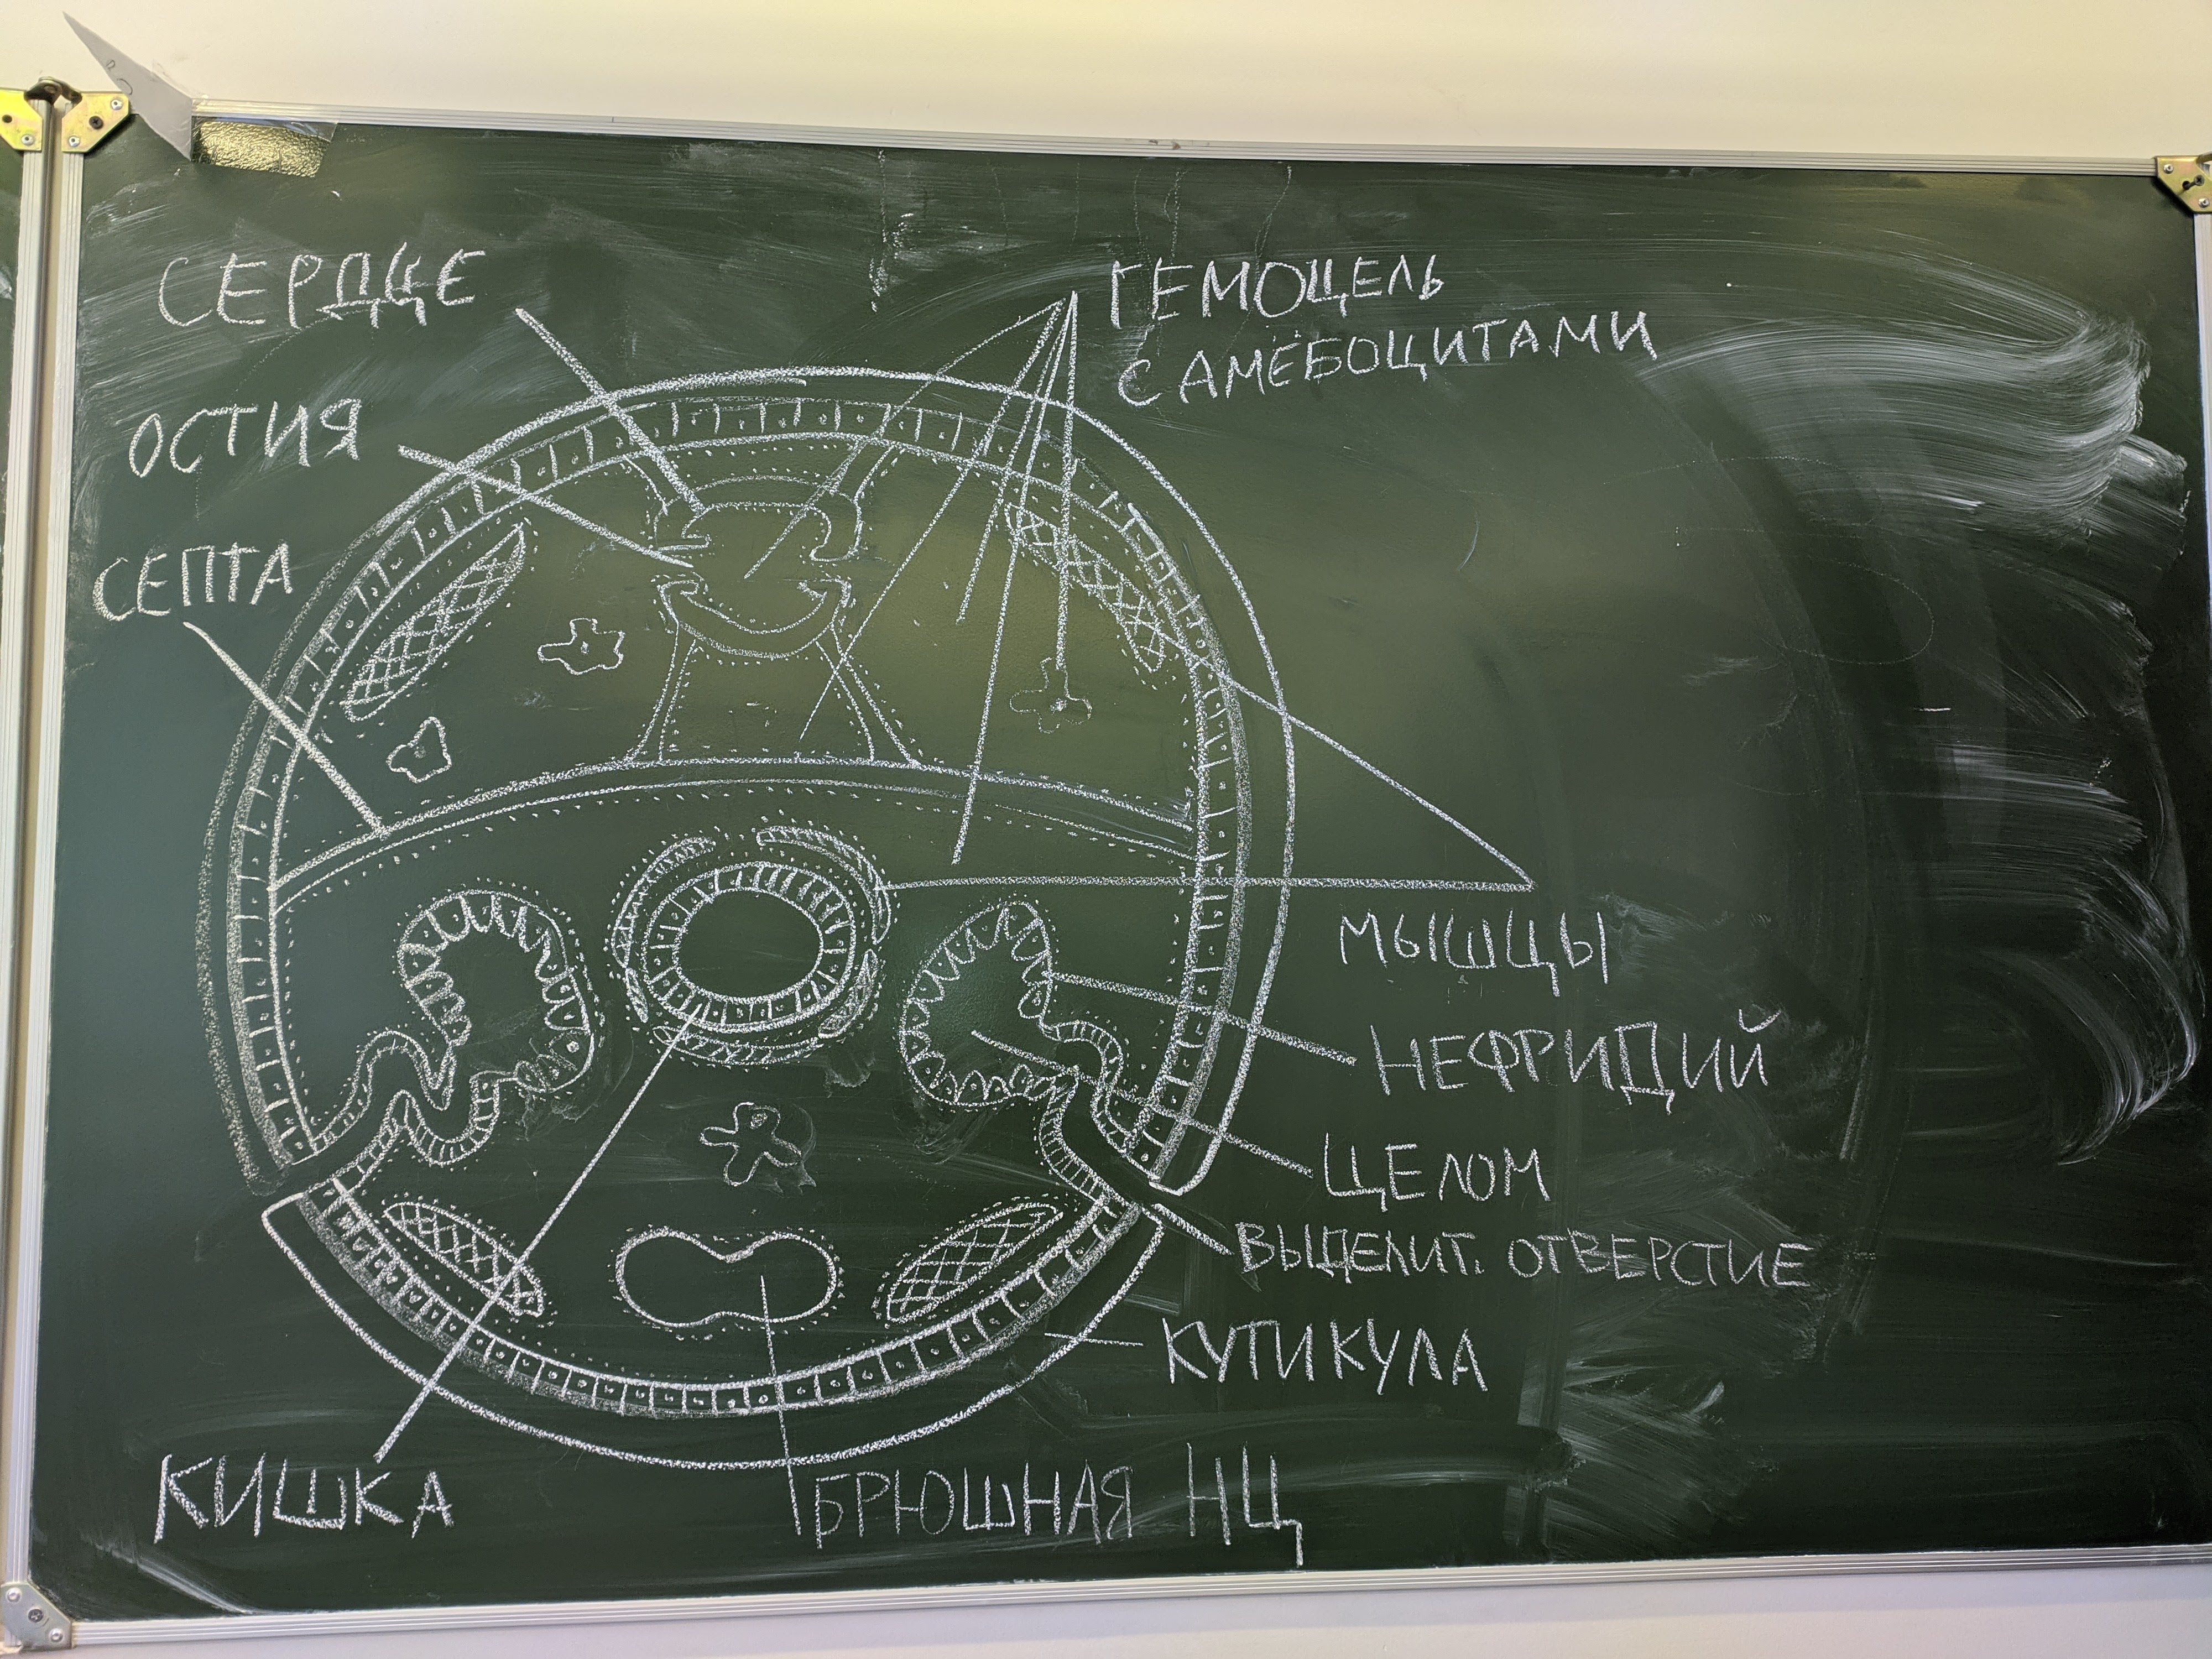 СЕРДЦЕ
ОСТИЯ
СЕПТА
ГЕМОЦЕЛЬ
С АМЕБОЦИТАМИ
МЫШЦЫ
НЕФРИДИЙ
ЦЕЛОМ
ВЫДЕЛИТ. ОТВЕРСТИЕ
КУТИКУЛА
КИШКА
БРЮШНАЯ НЦ